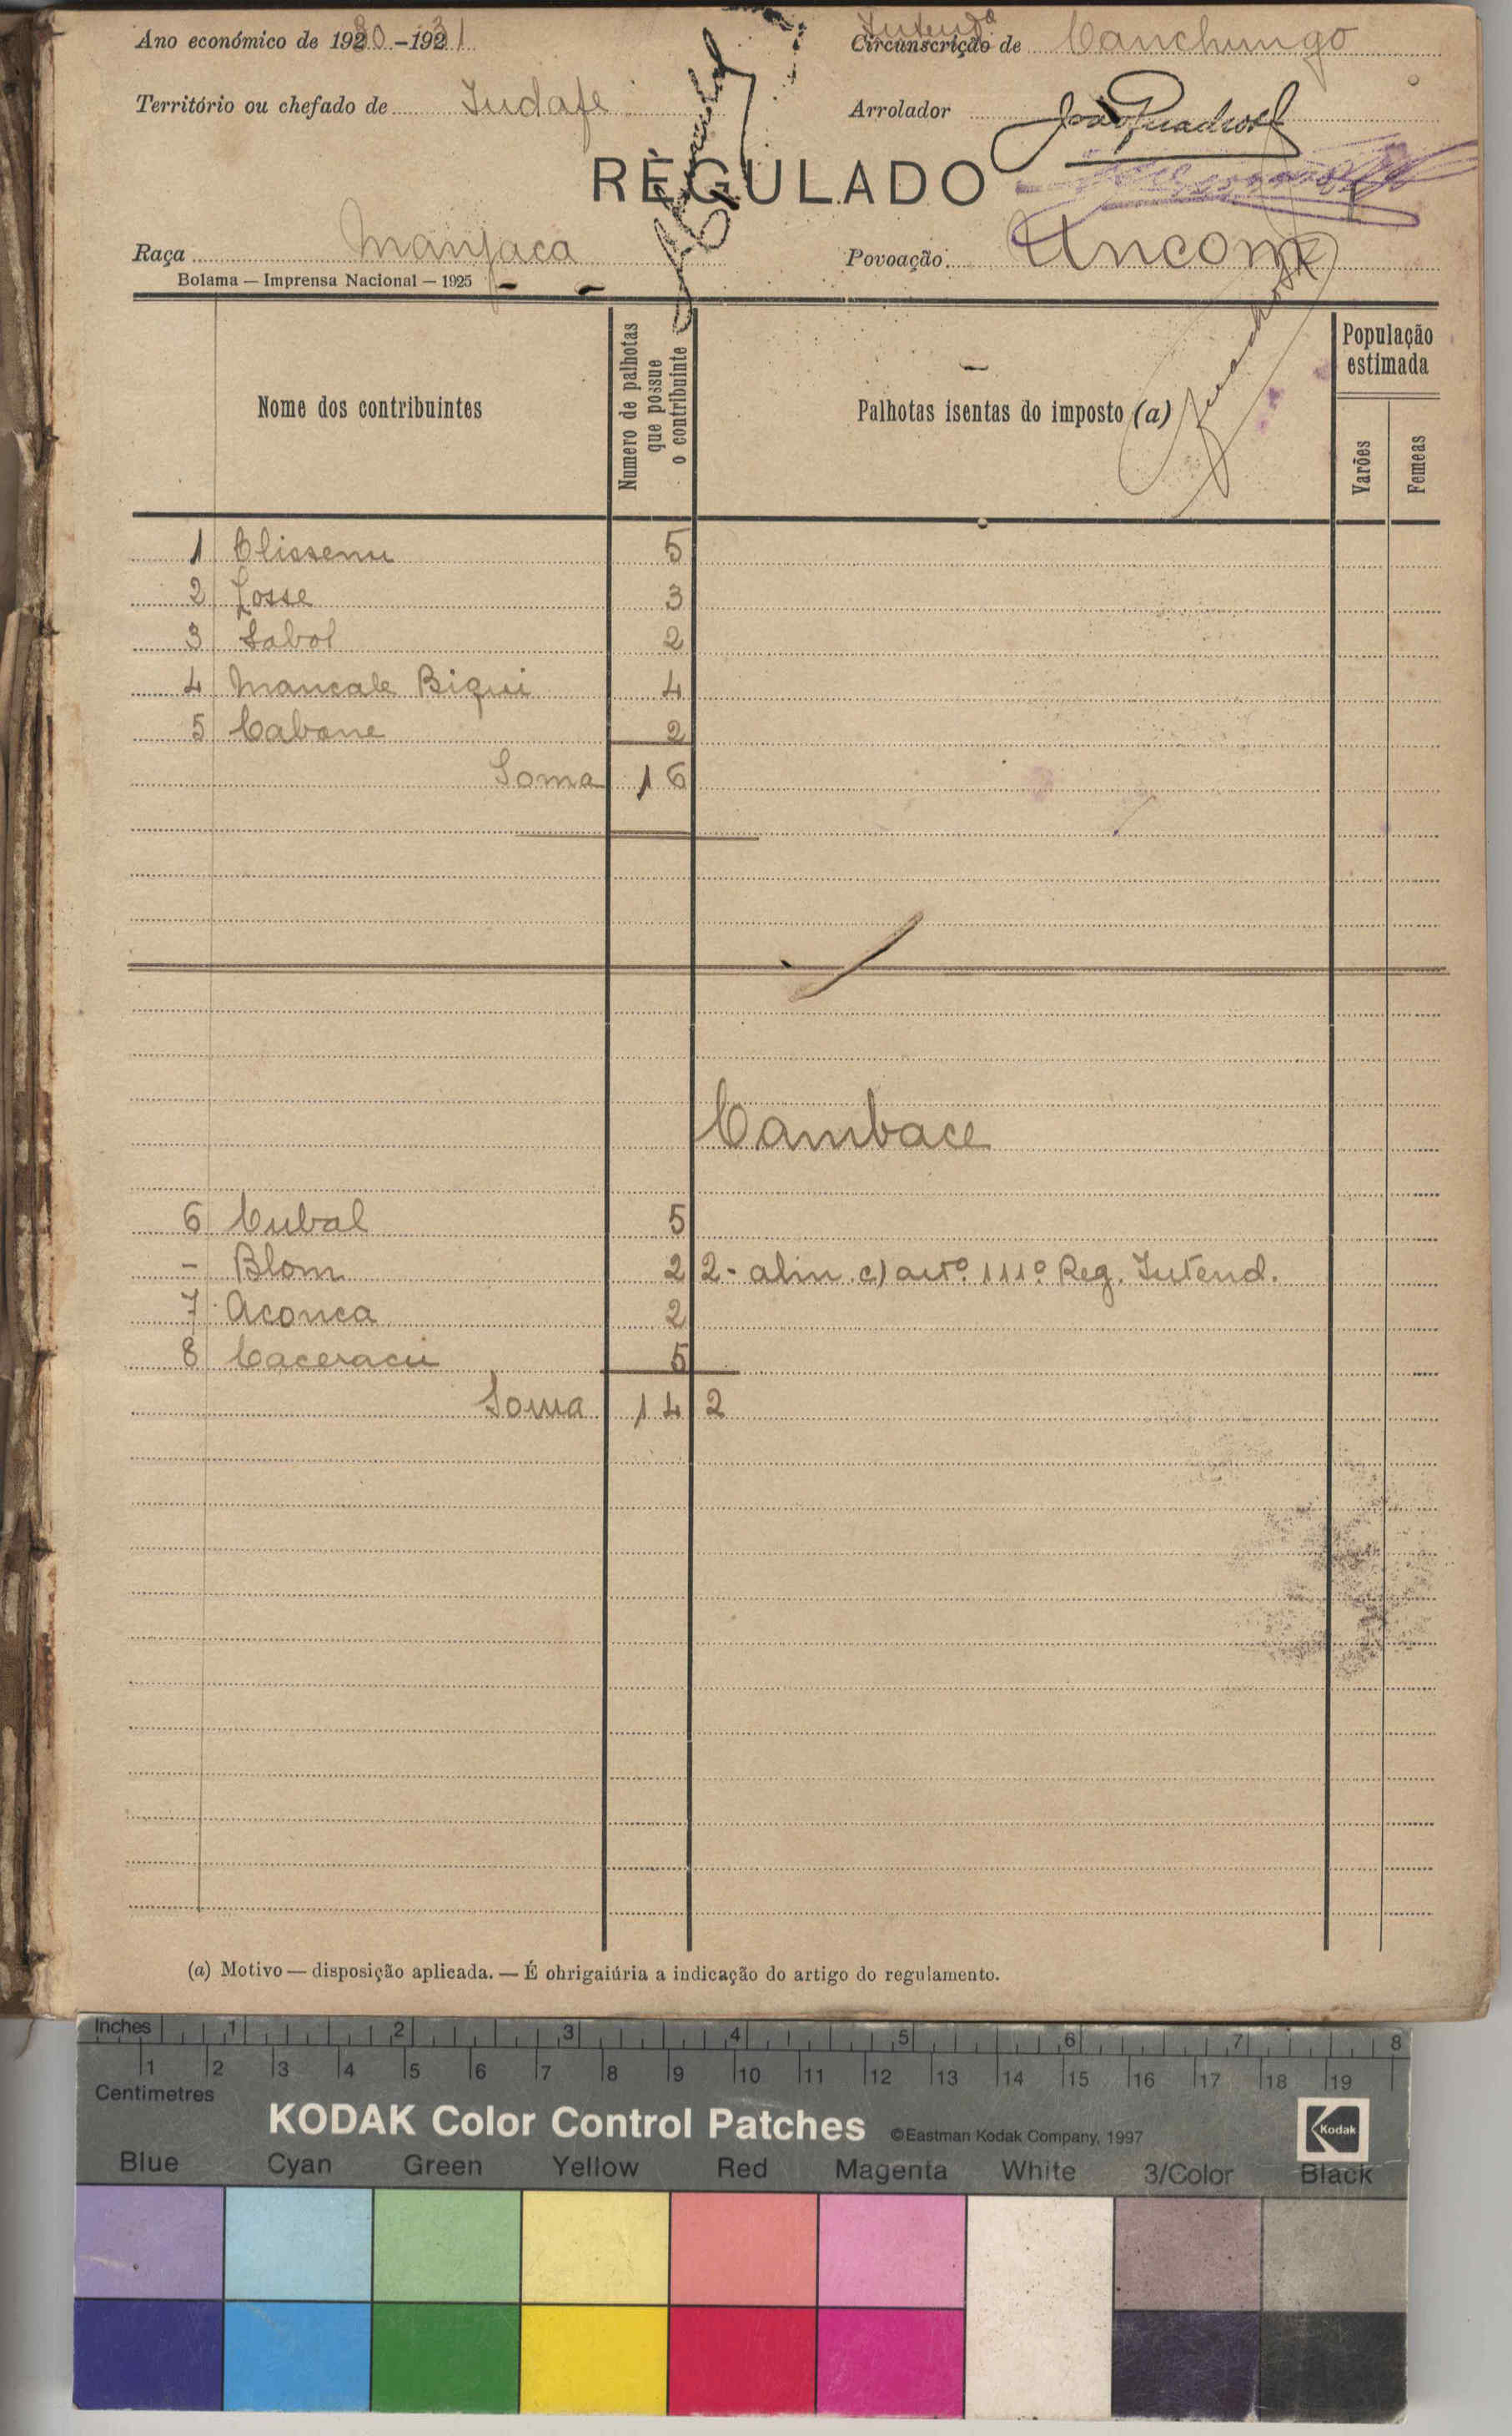 Ano económico de 1930-1931
Intend.ª
Circunscrição de Canchungo
Território ou chefado de Indafe
Arrolador
RÈGULADO
Raça Manjaca
Povoação Uncom
Bolama — Imprensa Nacional — 1925
Nome dos contribuintes
Numero de palhotas
que possue
o contribuinte
Palhotas isentas do imposto (a)
População
estimada
Varões
Femeas
1 Clissenu 5
2 Josse 3
3 Sabol 2
4 Mancale Biqui 4
5 Cabane 2
Soma 16
Cambace
6 Cubal 5
- Blom 2 2- alin c) artº 111º Reg. Intend.
7 Aconca 2
8 Caceracu 5
Soma 14 2
(a) Motivo — disposição aplicada. — É ohrigaiúria a indicação do artigo do regulamento.
Inches 1 2 3 4 5 6 7 8
1 2 3 4 5 6 7 8 9 10 11 12 13 14 15 16 17 18 19
Centimetres
KODAK Color Control Patches ©Eastman Kodak Company, 1997 Kodak
Blue Cyan Green Yellow Red Magenta White 3/Color Black